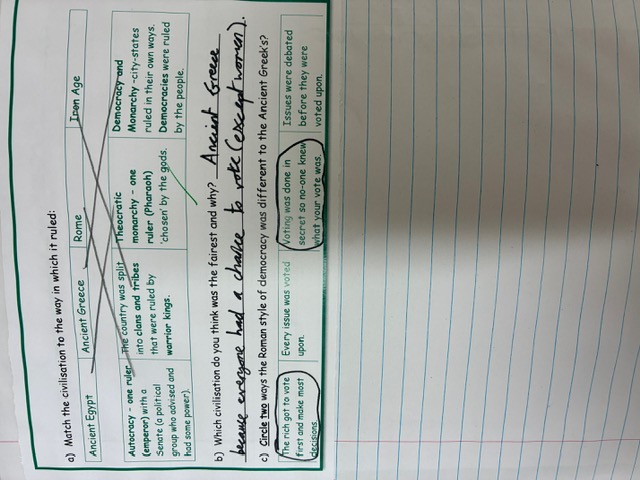 a) Match the civilisation to the way in which it ruled:
Ancient Egypt
Ancient Greece
Rome
Iron Age
Autocracy - one ruler
(emperor) with a
Senate (a political
group who advised and
had some power).
The country was split
into clans and tribes
that were ruled by
warrior kings.
Theocratic
monarchy - one
ruler (Pharaoh)
'chosen' by the gods.
Democracy and
Monarchy -city-states
ruled in their own ways.
Democracies were ruled
by the people.
b) Which civilisation do you think was the fairest and why? Ancient Greece
because everyone had a chance to vote (except women).
c) Circle two ways the Roman style of democracy was different to the Ancient Greek's?
The rich got to vote
first and make most
decisions.
Every issue was voted
upon.
Voting was done in
secret so no-one knew
what your vote was.
Issues were debated
before they were
voted upon.